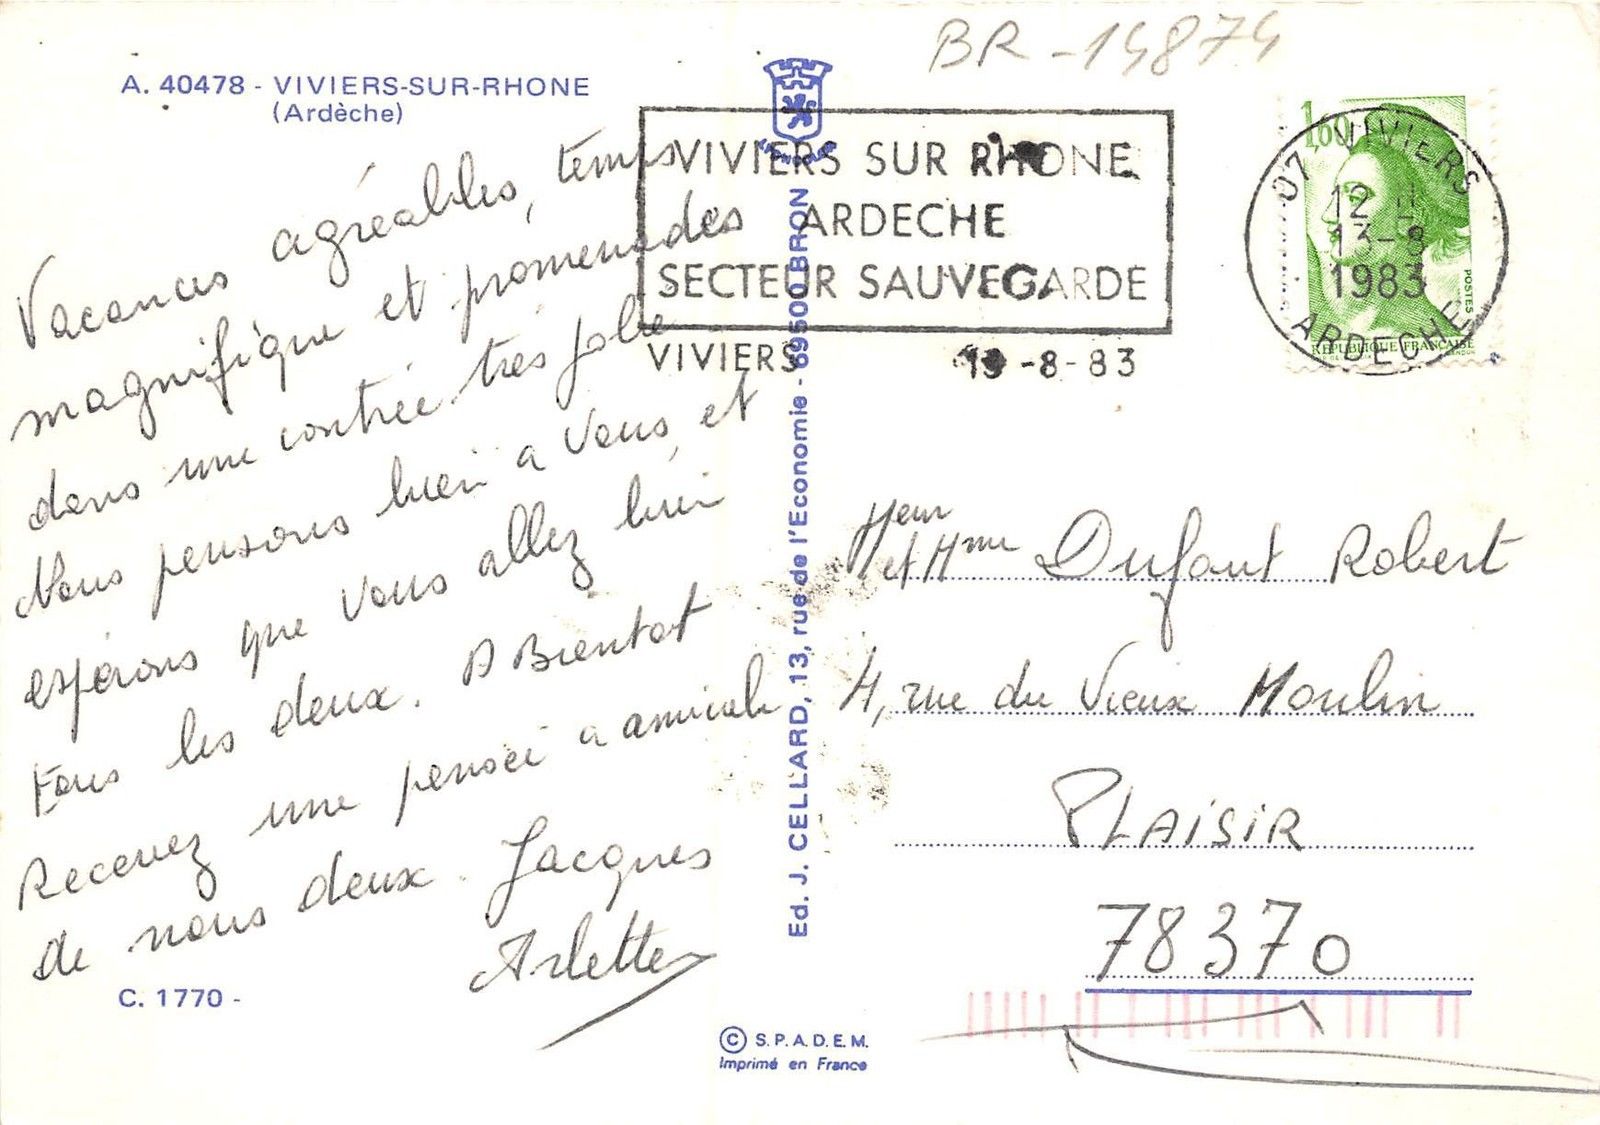 BR-14874
A. 40478 - VIVIERS-SUR-RHONE
(Ardèche)
Vacances agréables, temps
magnifique et promenades
dans une contrée très jolie
Nous pensons bien a Vous, et
espérons que Vous allez bien
Tous les deux. A Bientot
Recevez une pensée amicale
de nous deux. Jacques
Arlette
C. 1770 -
VIVIERS SUR RHONE
ARDECHE
SECTEUR SAUVEGARDE
VIVIERS 13-8-83
1,60
POSTES
REPUBLIQUE FRANÇAISE
07 VIVIERS
12 H
13-8
1983
ARDECHE
Ed. J. CELLARD, 13, rue de l'Economie - 69500 BRON
Meur
et Mme Dufaut Robert
4, rue du Vieux Moulin
PLAISIR
78370
© S.P.A.D.E.M.
Imprimé en France